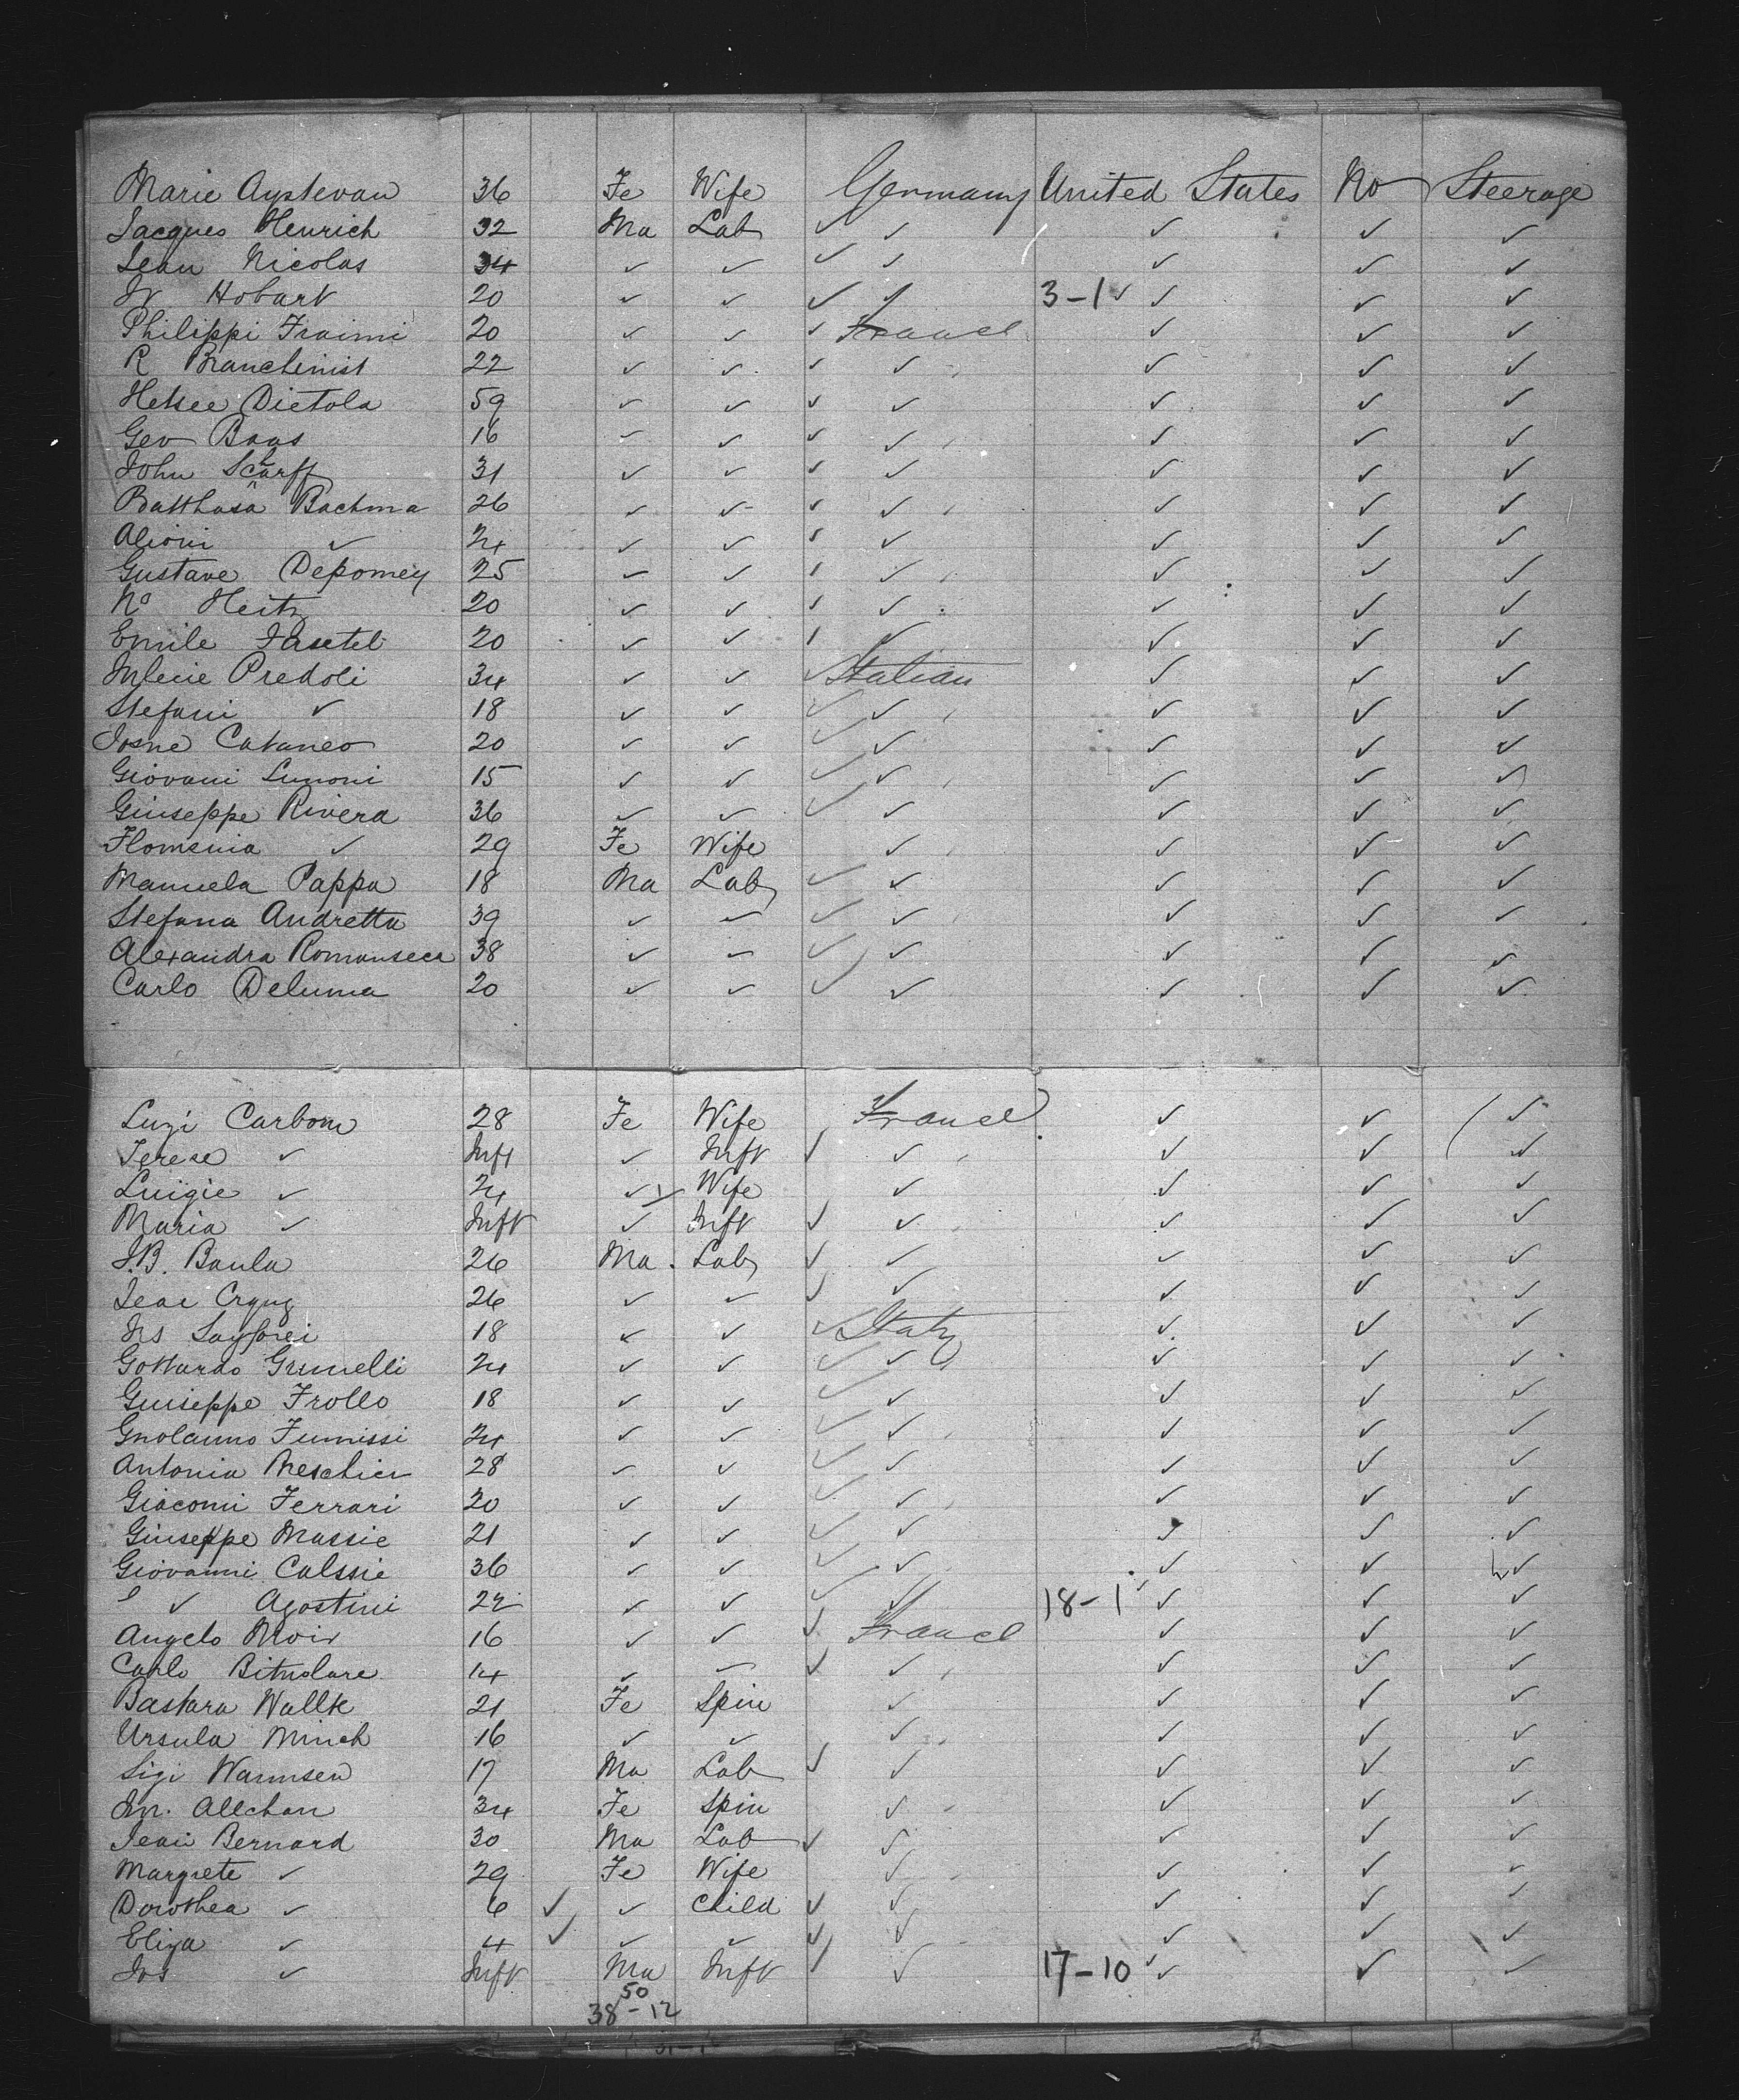 Marie Aystevan 36 Fe Wife Germany United States No Steerage
Jacques Henrich 32 Ma Lab ✓ ✓ ✓ ✓ ✓
Jean Nicolas 34 ✓ ✓ ✓ ✓ ✓ ✓ ✓
Hobart 20 ✓ ✓ ✓ ✓ 3-1 ✓ ✓ ✓ ✓
Philippi Fraimi 20 ✓ ✓ ✓ France ✓ ✓ ✓
R Branchinist 22 ✓ ✓ ✓ ✓ ✓ ✓ ✓
Hetsee Dietola 59 ✓ ✓ ✓ ✓ ✓ ✓ ✓
Geo Baas 16 ✓ ✓ ✓ ✓ ✓ ✓ ✓
John Scharff 31 ✓ ✓ ✓ ✓ ✓ ✓ ✓
Batthasa Bachma 26 ✓ ✓ ✓ ✓ ✓ ✓ ✓
Alioni ✓ 24 ✓ ✓ ✓ ✓ ✓ ✓ ✓
Gustave Depomey 25 ✓ ✓ ✓ ✓ ✓ ✓ ✓
No Heitz 20 ✓ ✓ ✓ ✓ ✓ ✓ ✓
Emile 20 ✓ ✓ ✓ ✓ ✓ ✓ ✓
Predoli 34 ✓ ✓ ✓ Italian ✓ ✓ ✓
Stefani ✓ 18 ✓ ✓ ✓ ✓ ✓ ✓ ✓
Josne Cataneo 20 ✓ ✓ ✓ ✓ ✓ ✓ ✓
Giovani Lunoni 15 ✓ ✓ ✓ ✓ ✓ ✓ ✓
Giuseppe Rivera 36 ✓ ✓ ✓ ✓ ✓ ✓ ✓
Flomenia ✓ 29 Fe Wife ✓ ✓ ✓ ✓
Manuela Pappa 18 Ma Lab ✓ ✓ ✓ ✓ ✓
Stefana Andretta 39 ✓ ✓ ✓ ✓ ✓ ✓ ✓
Alexandra Romanseca 38 ✓ ✓ ✓ ✓ ✓ ✓ ✓
Carlo Deluma 20 ✓ ✓ ✓ ✓ ✓ ✓ ✓
Luzi Carbom 28 Fe Wife France ✓ ✓ ✓
Terese ✓ Inft ✓ Inft ✓ ✓ ✓ ✓ ✓
Luigie ✓ 24 ✓ Wife ✓ ✓ ✓ ✓
Maria ✓ Inft ✓ Inft ✓ ✓ ✓ ✓ ✓
J.B. Baula 26 Ma. Lab ✓ ✓ ✓ ✓ ✓
26 ✓ ✓ ✓ ✓ ✓ ✓ ✓
18 ✓ ✓ ✓ Italy ✓ ✓ ✓
Gottardo Grumelli 24 ✓ ✓ ✓ ✓ ✓ ✓ ✓
Guiseppe Frollo 18 ✓ ✓ ✓ ✓ ✓ ✓ ✓
Gnolanno Fumissi 24 ✓ ✓ ✓ ✓ ✓ ✓ ✓
Antonia 28 ✓ ✓ ✓ ✓ ✓ ✓ ✓
Giacomi Ferrari 20 ✓ ✓ ✓ ✓ ✓ ✓ ✓
Giuseppe Massie 21 ✓ ✓ ✓ ✓ ✓ ✓ ✓
Giovanni Calssie 36 ✓ ✓ ✓ ✓ ✓ ✓ ✓
✓ Agostini 22 ✓ ✓ ✓ ✓ 18-1 ✓ ✓ ✓ ✓
Angelo Moir 16 ✓ ✓ ✓ France ✓ ✓ ✓
Carlo Bitnolare 14 ✓ ✓ ✓ ✓ ✓ ✓ ✓
Bastara Wallk 21 Fe Spin ✓ ✓ ✓ ✓
Ursula Minch 16 ✓ ✓ ✓ ✓ ✓ ✓
Sigi Wannsen 17 Ma Lab ✓ ✓ ✓ ✓ ✓
Allchan 34 Fe Spin ✓ ✓ ✓ ✓
Jeai Bernard 30 Ma Lab ✓ ✓ ✓ ✓ ✓
Margrete ✓ 29 Fe Wife ✓ ✓ ✓ ✓
Dorothea ✓ 6 ✓ ✓ Child ✓ ✓ ✓ ✓ ✓
Eliza ✓ 4 ✓ ✓ ✓ ✓ ✓ ✓ ✓ ✓
Jos ✓ Inft Ma Inft ✓ ✓ 17-10 ✓ ✓ ✓ ✓
50
38-12